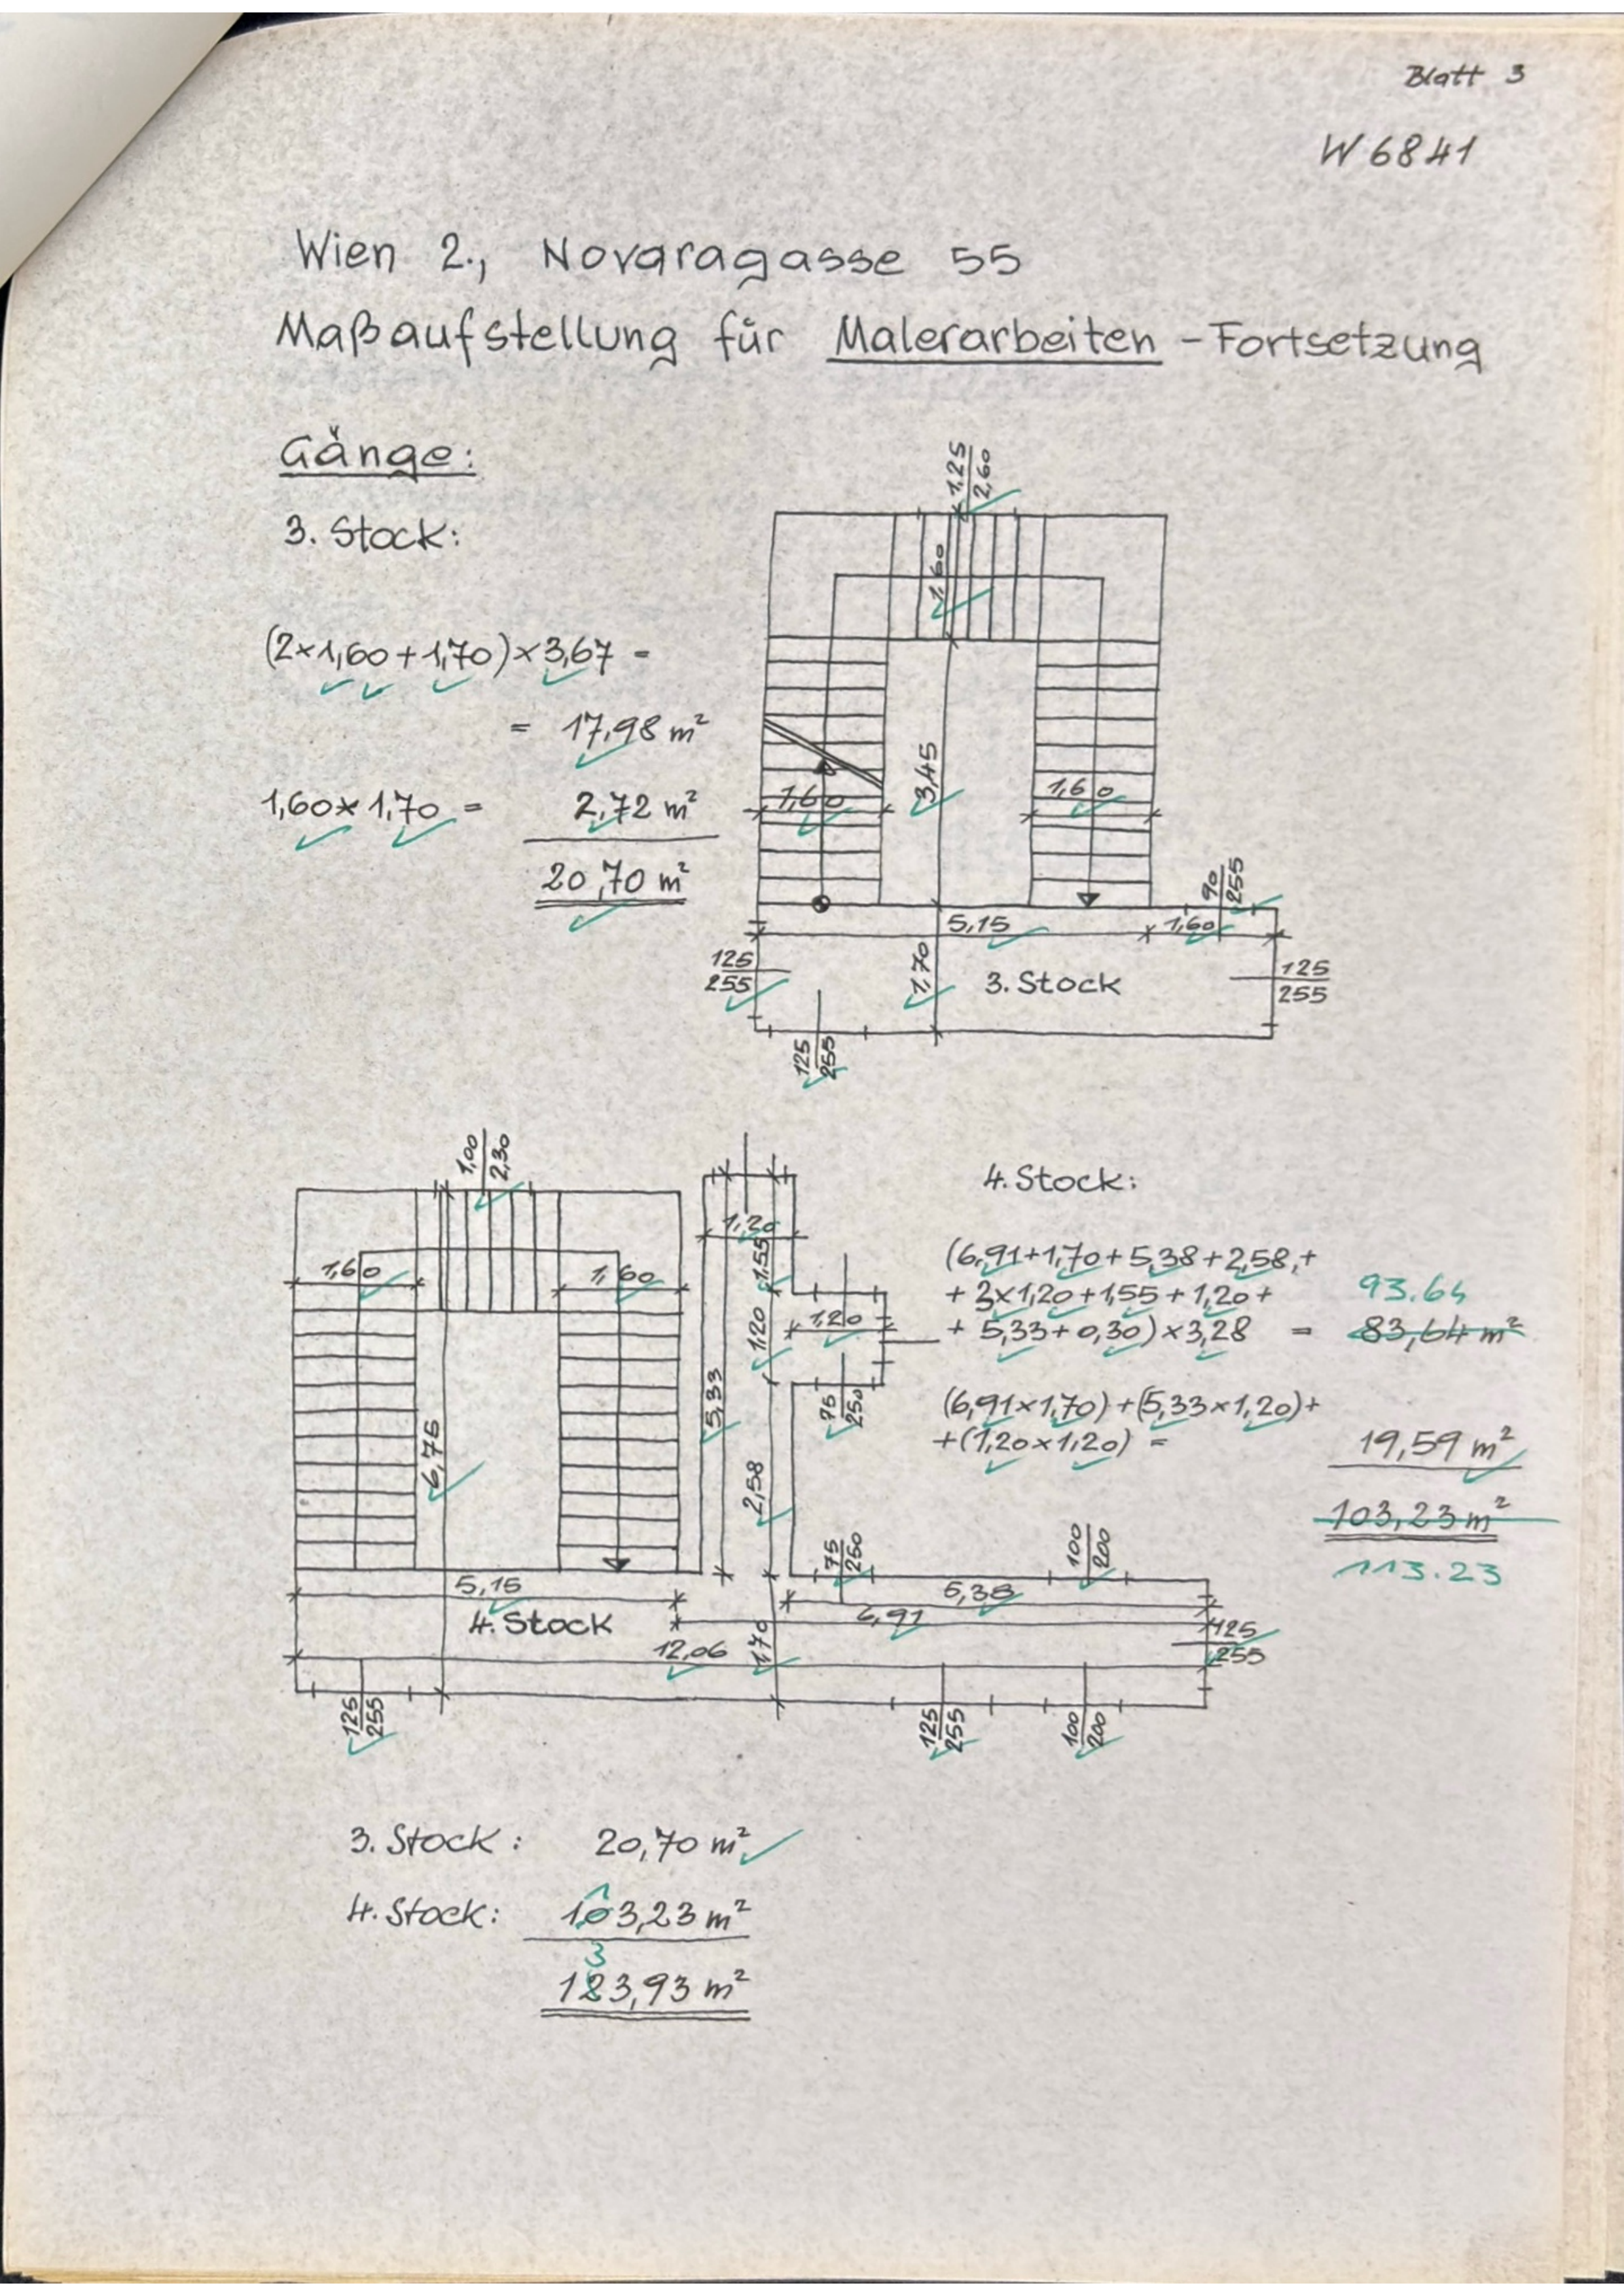 Blatt 3
W 6841
Wien 2., Novaragasse 55
Maßaufstellung für Malerarbeiten - Fortsetzung
Gänge:
3. Stock:
(2×1,60+1,70)×3,67 =
= 17,98 m²
1,60×1,70 = 2,72 m²
20,70 m²
1,25
2,60
1,60
3,45
1,60
1,60
90
255
5,15
1,60
125
255
1,70
3. Stock
125
255
125
255
1,00
2,30
1,60
1,60
6,75
1,20
1,55
1,20
1,20
5,33
75
250
2,58
75
250
100
200
5,15
5,38
4. Stock
6,91
12,06
1,70
125
255
125
255
125
255
100
200
4. Stock:
(6,91+1,70+5,38+2,58,+
+ 3×1,20+1,55+1,20+ 93.64
+ 5,33+0,30)×3,28 = 83,64 m²
(6,91×1,70)+(5,33×1,20)+
+(1,20×1,20) = 19,59 m²
103,23 m²
113.23
3. Stock: 20,70 m²
1
4. Stock: 103,23 m²
3
123,93 m²